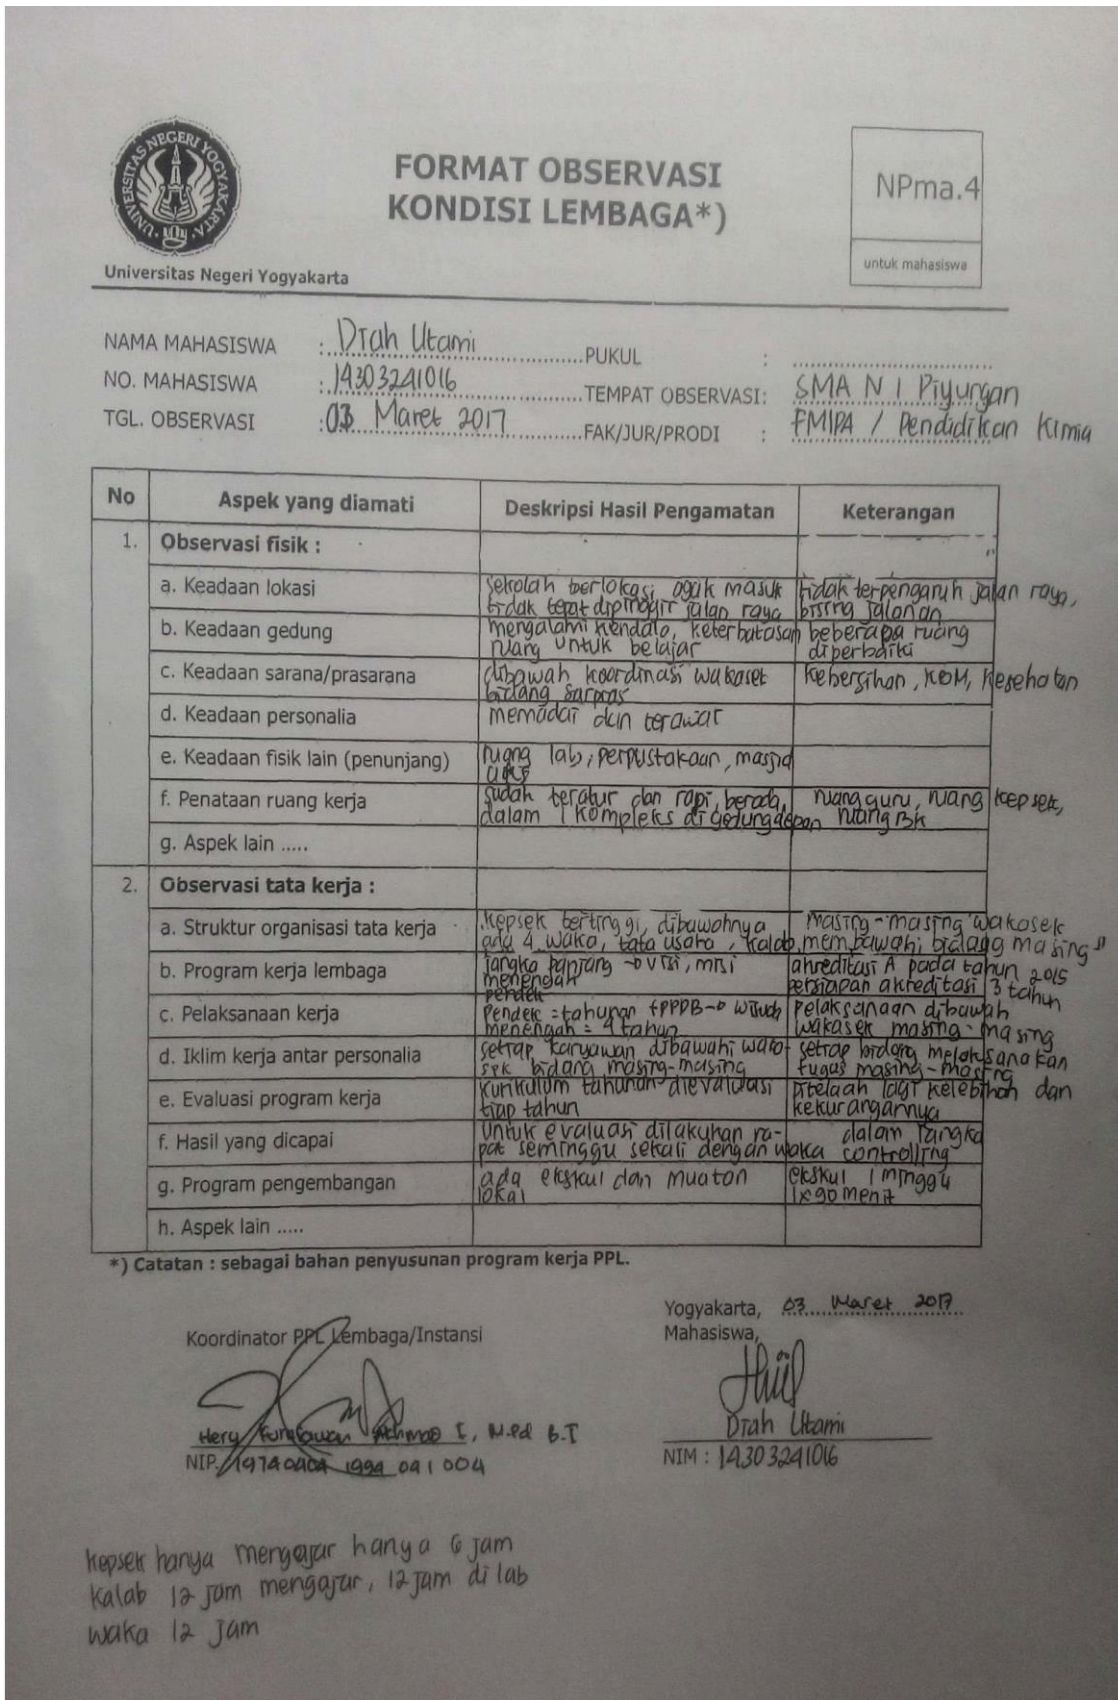 UNIVERSITAS NEGERI YOGYAKARTA
FORMAT OBSERVASI
KONDISI LEMBAGA*)
NPma.4
untuk mahasiswa
Universitas Negeri Yogyakarta
NAMA MAHASISWA : Diah Utami PUKUL :
NO. MAHASISWA : 14303241016 TEMPAT OBSERVASI: SMA N 1 Piyungan
TGL. OBSERVASI : 03 Maret 2017 FAK/JUR/PRODI : FMIPA / Pendidikan Kimia
No Aspek yang diamati Deskripsi Hasil Pengamatan Keterangan
1. Observasi fisik :
a. Keadaan lokasi
sekolah berlokasi agak masuk
tidak tepat dipinggir jalan raya
tidak terpengaruh jalan raya,
bising jalanan
b. Keadaan gedung
mengalami kendala, keterbatasan
ruang untuk belajar
beberapa ruang
diperbaiki
c. Keadaan sarana/prasarana
dibawah koordinasi wakasek
bidang sarpras
Kebersihan, KBM, Kesehatan
d. Keadaan personalia
memadai dan terawat
e. Keadaan fisik lain (penunjang)
ruang lab, perpustakaan, masjid
f. Penataan ruang kerja
sudah teratur dan rapi, berada
dalam 1 kompleks di gedung depan
ruang guru, ruang kepsek,
ruang BK
g. Aspek lain .....
2. Observasi tata kerja :
a. Struktur organisasi tata kerja
kepsek tertinggi, dibawahnya
ada 4 waka, tata usaha, kalab
masing-masing wakasek
membawahi bidang masing"
b. Program kerja lembaga
jangka panjang → visi, misi
menengah
pendek
akreditasi A pada tahun 2015
persiapan akreditasi 3 tahun
c. Pelaksanaan kerja
pendek = tahunan PPDB → wisuda
menengah = 4 tahun
pelaksanaan dibawah
wakasek masing-masing
d. Iklim kerja antar personalia
setiap karyawan dibawahi waka-
sek bidang masing-masing
setiap bidang melaksanakan
tugas masing-masing
e. Evaluasi program kerja
kurikulum tahunan dievaluasi
tiap tahun
ditelaah lagi kelebihan dan
kekurangannya
f. Hasil yang dicapai
untuk evaluasi dilakukan ra-
pat seminggu sekali dengan waka
dalam rangka
controlling
g. Program pengembangan
ada ekskul dan muatan
lokal
ekskul 1 minggu
1x90 menit
h. Aspek lain .....
*) Catatan : sebagai bahan penyusunan program kerja PPL.
Yogyakarta, 03 Maret 2017
Koordinator PPL Lembaga/Instansi
Mahasiswa,
Hery Achmad M.Pd B.I
Diah Utami
NIP. 19740404 1994 041 004
NIM : 14303241016
kepsek hanya mengajar hanya 6 jam
kalab 12 jam mengajar, 12 jam di lab
waka 12 jam